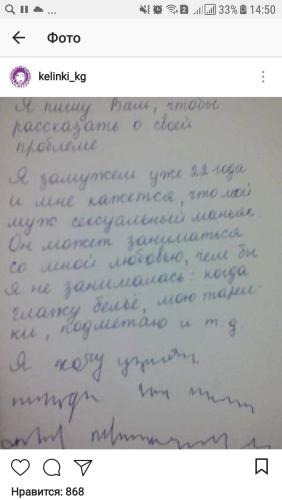 33% 14:50
Фото
kelinki_kg
Я пишу Вам, чтобы
рассказать о своей
проблеме.
Я замужем уже 22 года
и мне кажется, что мой
муж сексуальный маньяк.
Он может заниматься
со мной любовью, чем бы
я не занималась: когда
глажу бельё, мою тарел-
ки, подметаю и т.д.
Я хочу
Нравится: 868